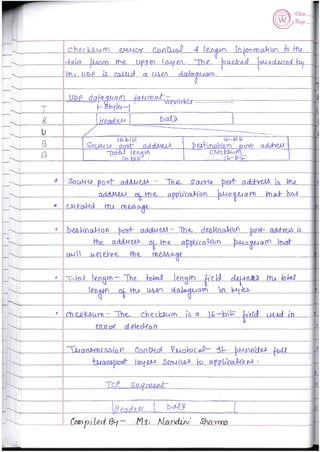 Date
Page
checksum error control & length information to the
data from the upper layer. The packed produced by
the UDP is called a user datagram.
UDP datagram format:-
8 bytes Variable
Header Data
16-bits 16-bits
Source port address Destination port address
Total length Checksum
16-bits 16-bits
T
R
U
B
A
* Source port address - The source port address is the
address of the application program that has
* created the message.
* Destination port address - The destination port address is
the address of the application program that
will receive the message.
* Total length - The total length field defines the total
length of the user datagram in bytes.
* checksum - The checksum is a 16-bits field used in
error detection
Transmission Control Protocol - It provides full
transport layer services to applications.
TCP Segment
Header Data
Compiled By - Ms. Nandini Sharma